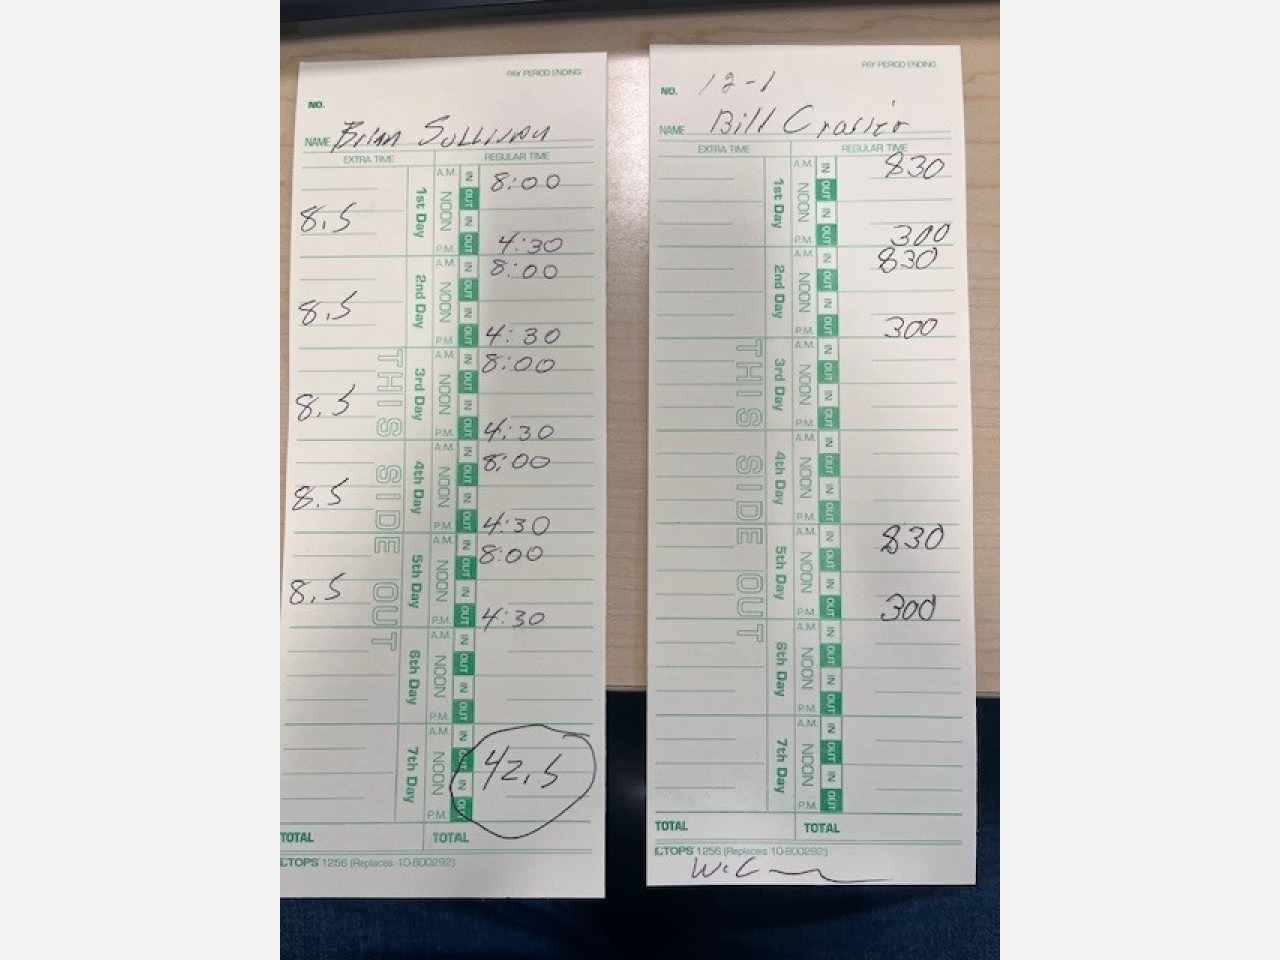 PAY PERIOD ENDING
NO.
NAME Brian Sullivan
EXTRA TIME REGULAR TIME
1st Day
A.M. IN 8:00
OUT
NOON
8.5
IN
P.M. OUT 4:30
2nd Day
A.M. IN 8:00
OUT
NOON
8.5
IN
P.M. OUT 4:30
3rd Day
A.M. IN 8:00
OUT
NOON
8.5
IN
P.M. OUT 4:30
4th Day
A.M. IN 8:00
OUT
NOON
8.5
IN
P.M. OUT 4:30
5th Day
A.M. IN 8:00
OUT
NOON
8.5
IN
P.M. OUT 4:30
6th Day
A.M. IN
OUT
NOON
IN
P.M. OUT
7th Day
A.M. IN
OUT
NOON
42.5
IN
P.M. OUT
THIS SIDE OUT
TOTAL TOTAL
TOPS 1256 (Replaces 10-800292)
PAY PERIOD ENDING
NO. 12-1
NAME Bill Crosier
EXTRA TIME REGULAR TIME
1st Day
A.M. IN 830
OUT
NOON
IN
P.M. OUT 300
2nd Day
A.M. IN 830
OUT
NOON
IN
P.M. OUT 300
3rd Day
A.M. IN
OUT
NOON
IN
P.M. OUT
4th Day
A.M. IN
OUT
NOON
IN
P.M. OUT
5th Day
A.M. IN 830
OUT
NOON
IN
P.M. OUT 300
6th Day
A.M. IN
OUT
NOON
IN
P.M. OUT
7th Day
A.M. IN
OUT
NOON
IN
P.M. OUT
THIS SIDE OUT
TOTAL TOTAL
TOPS 1256 (Replaces 10-800292)